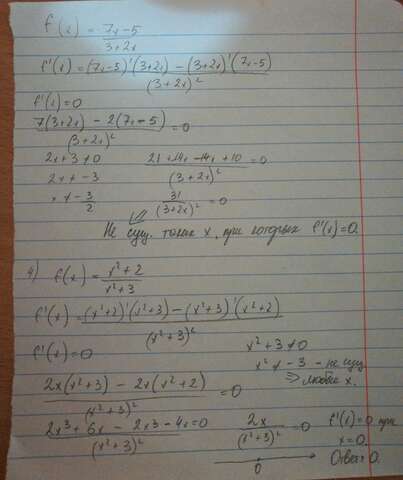 f(x) = (7x-5)/(3+2x)
f'(x) = ((7x-5)'(3+2x) - (3+2x)'(7x-5))/(3+2x)²
f'(x)=0
(7(3+2x) - 2(7x-5))/(3+2x)² = 0
2x+3≠0 (21+14x-14x+10)/(3+2x)² = 0
2x≠-3
x≠-3/2 31/(3+2x)² = 0
Не сущ. таких x, при которых f'(x)=0.
4) f(x) = (x²+2)/(x²+3)
f'(x) = ((x²+2)'(x²+3) - (x²+3)'(x²+2))/(x²+3)²
f'(x)=0 x²+3≠0
x²≠-3 - не сущ.
⇒ любое x.
(2x(x²+3) - 2x(x²+2))/(x²+3)² = 0
(2x³+6x-2x³-4x)/(x²+3)² = 0 2x/(x²+3)² = 0 f'(x)=0 при
x=0.
Ответ: 0.
0